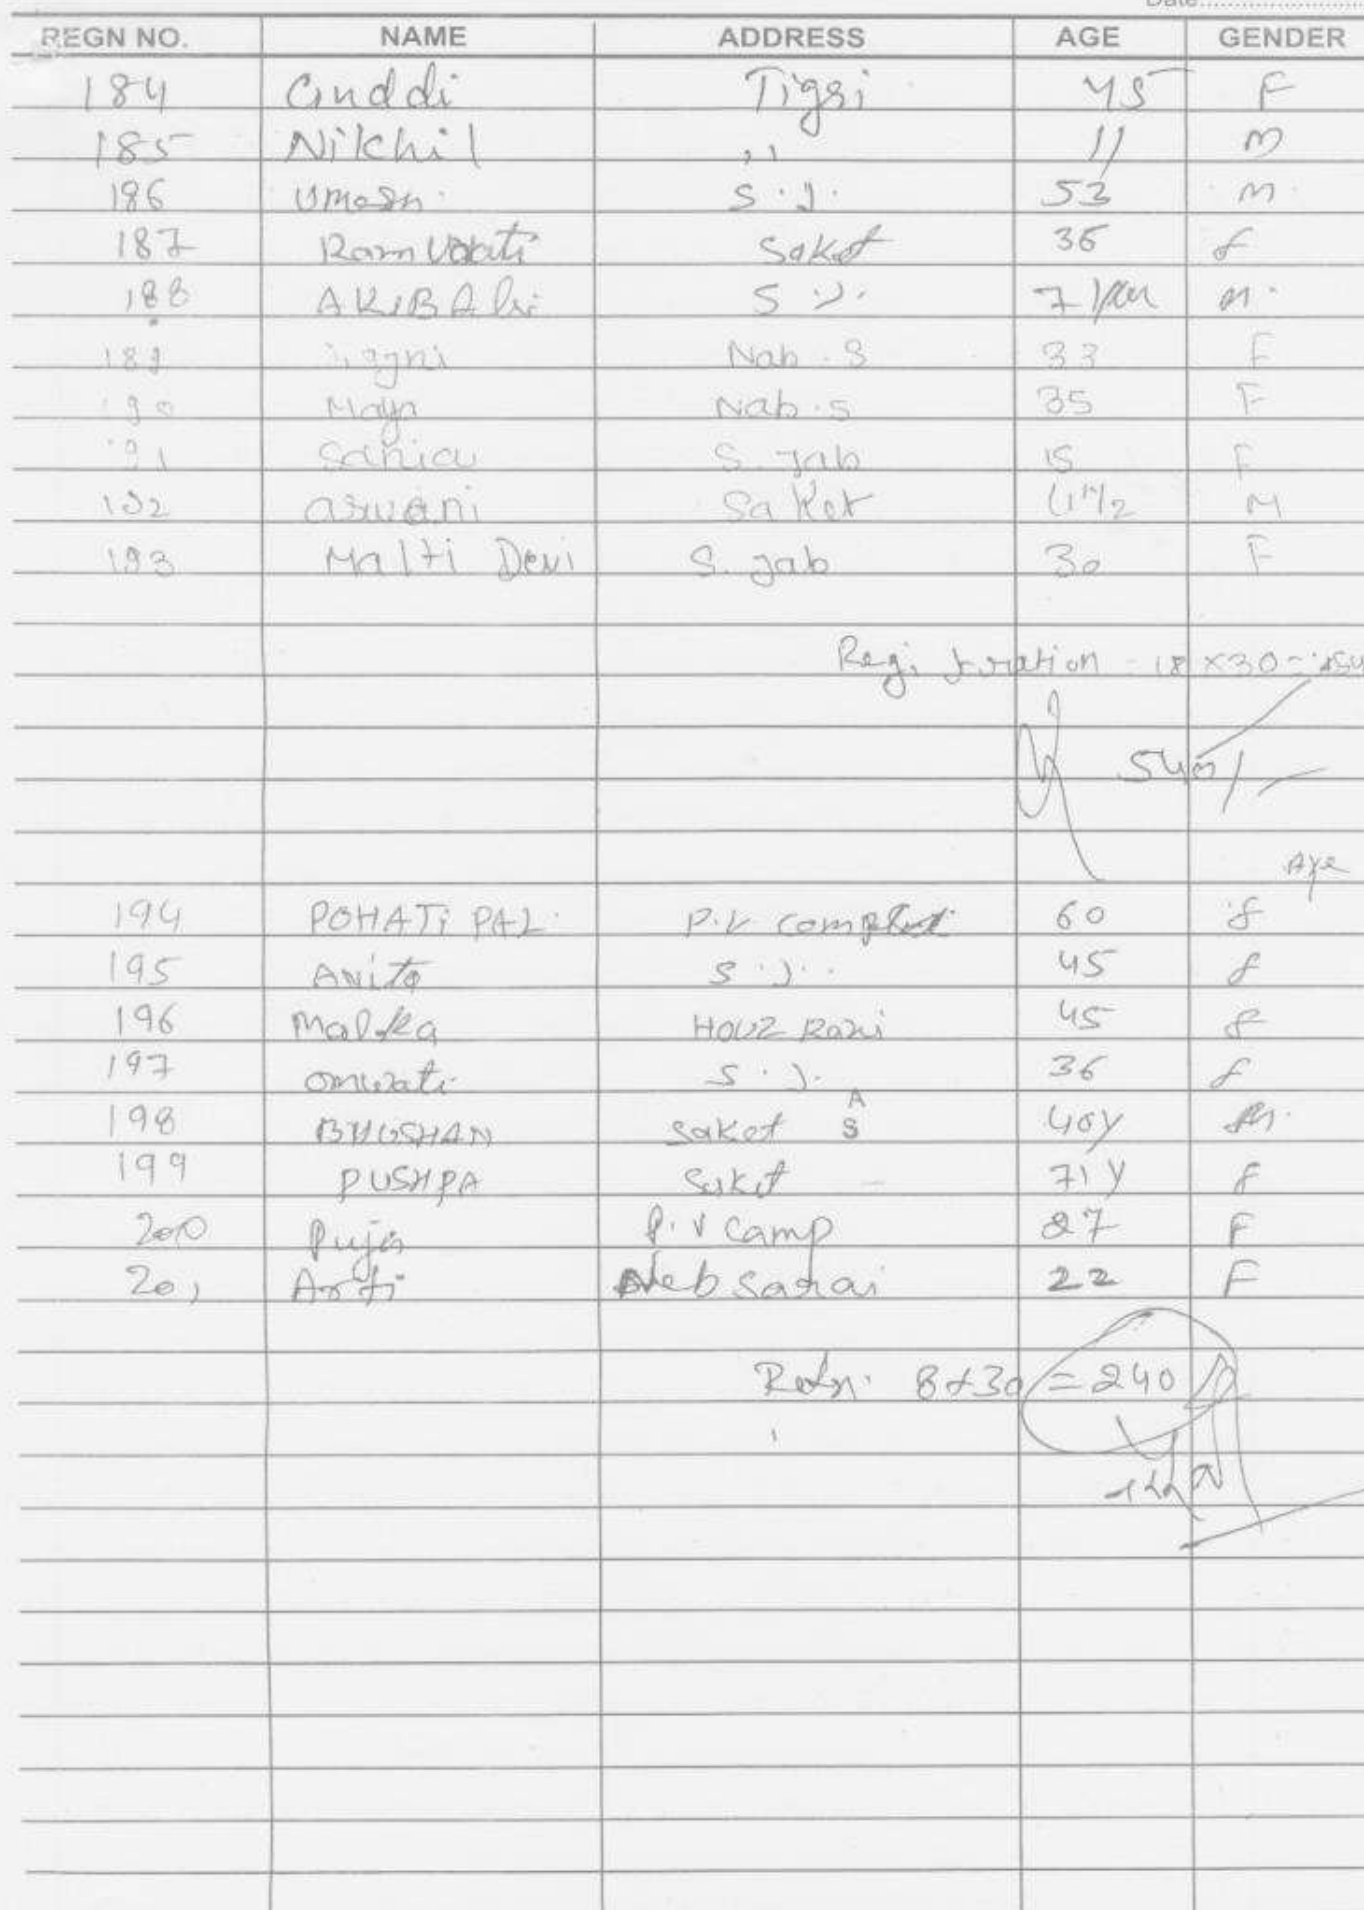 Date
REGN NO. NAME ADDRESS AGE GENDER
184 Guddi Tigri 45 F
185 Nikhil ,, 11 M
186 Umesh S.J. 53 M
187 Ram Vati Saket 36 f
188 AKIB Ali S.J. 7 year M.
189 Nab. S 33 F
190 Maya Nab. S 35 F
191 Sania S. Jab 15 F
192 aswani Saket M
193 Malti Devi S. Jab 30 F
Registration - 18 x 30 = 540
540/-
Age
194 POHATI PAL P.V 60 f
195 ANita S.J. 45 f
196 Malka HOUZ Rani 45 f
197 omwati S.J. 36 f
198 BHUSHAN Saket A S 40y M.
199 PUSHPA Saket 71y f
200 Puja P.V Camp 27 F
201 Arti Neb Sarai 22 F
8 x 30 = 240